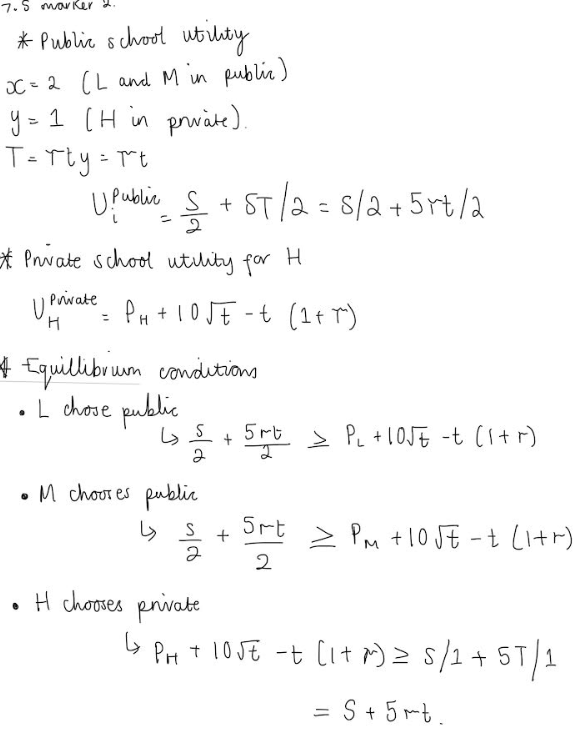 7.5 marker 2.
* Public school utility
x = 2 (L and M in public)
y = 1 (H in private).
T = rty = rt
U_i^Public = S/2 + 5T/2 = S/2 + 5rt/2
* Private school utility for H
U_H^Private = P_H + 10√t - t (1+r)
* Equillibrium conditions
• L chose public
↳ S/2 + 5rt/2 ≥ P_L + 10√t - t (1+r)
• M chooses public
↳ S/2 + 5rt/2 ≥ P_M + 10√t - t (1+r)
• H chooses private
↳ P_H + 10√t - t (1+r) ≥ S/1 + 5T/1
= S + 5rt.